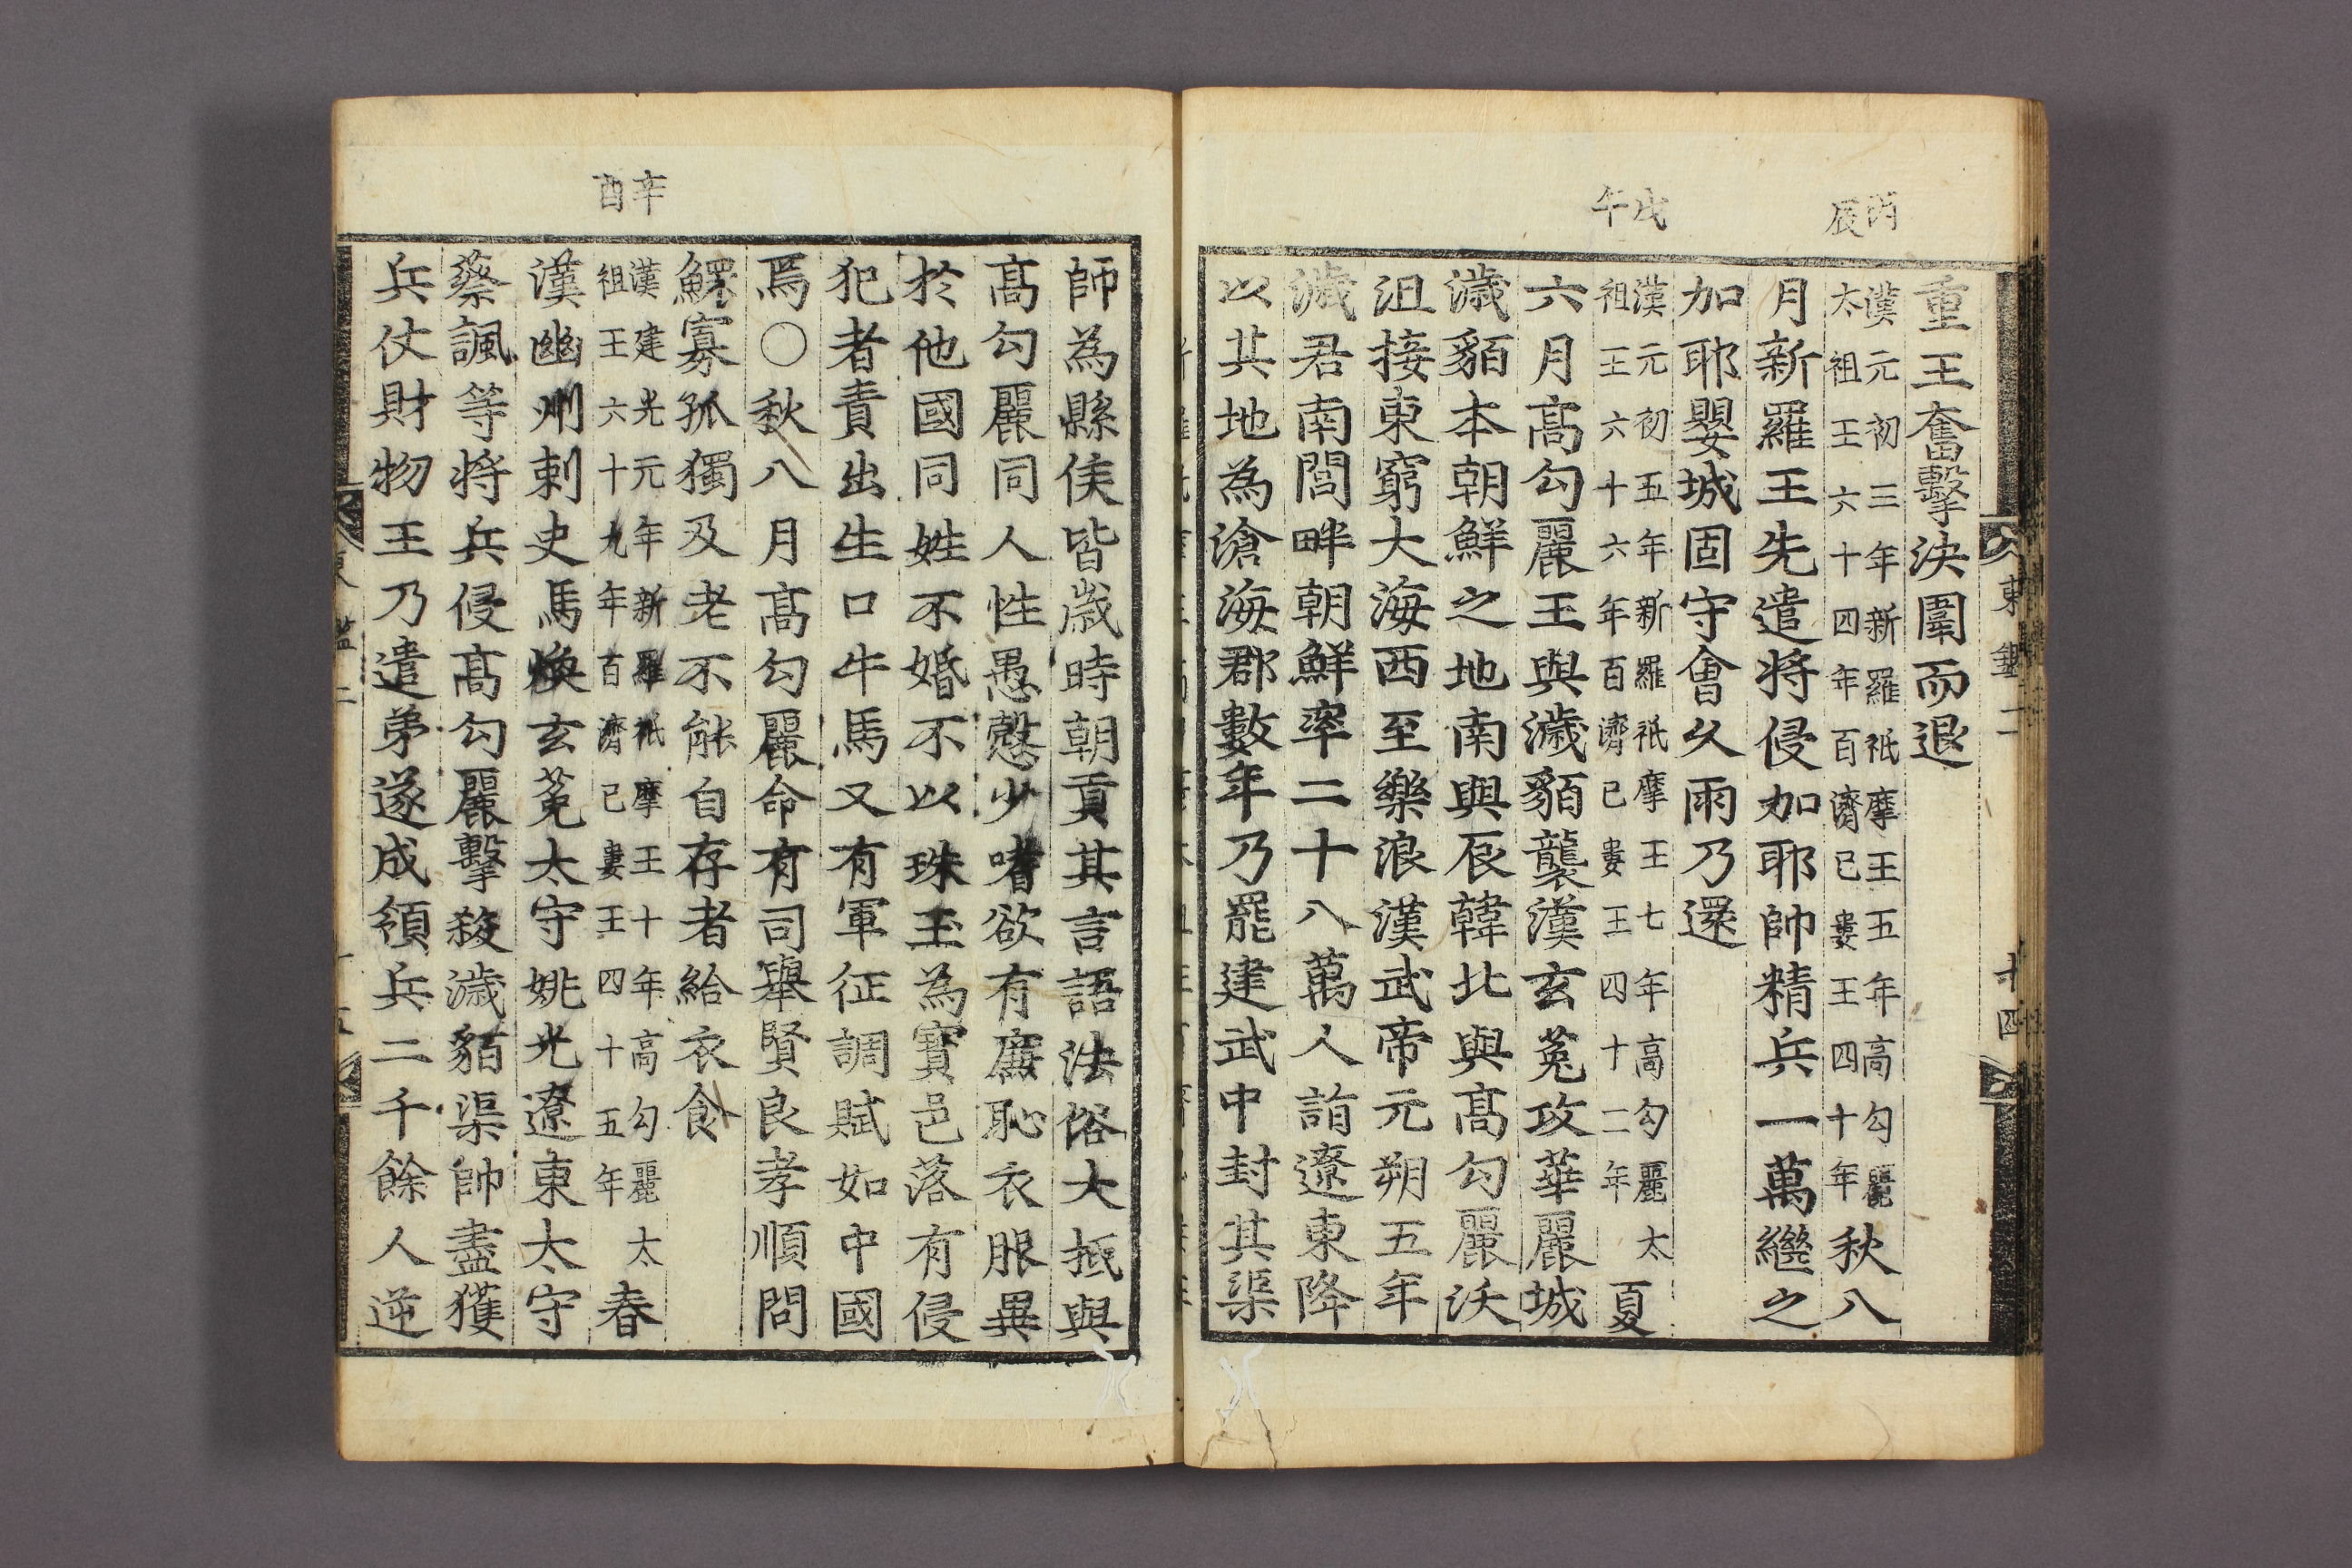 丙辰
戊午
重王奮擊決圍而退
漢元初三年新羅祇摩王五年高勾麗
太祖王六十四年百濟已婁王四十年
秋八
月新羅王先遣将侵加耶帥精兵一萬繼之
加耶嬰城固守會久雨乃還
漢元初五年新羅祇摩王七年高勾麗太
祖王六十六年百濟已婁王四十二年
夏
六月髙勾麗王與濊貊襲漢玄菟攻華麗城
濊貊本朝鮮之地南與辰韓北與髙勾麗沃
沮接東窮大海西至樂浪漢武帝元朔五年
濊君南閭畔朝鮮率二十八萬人詣遼東降
以其地為滄海郡數年乃罷建武中封其渠
東鑑二
十四
辛酉
師為縣侯皆歲時朝貢其言語法俗大抵與
髙勾麗同人性愚慤少嗜欲有廉恥衣服異
於他國同姓不婚不以珠玉為寶邑落有侵
犯者責出生口牛馬又有軍征調賦如中國
焉〇秋八月髙勾麗命有司舉賢良孝順問
鰥寡孤獨及老不能自存者給衣食
漢建光元年新羅祇摩王十年高勾麗太
祖王六十九年百濟已婁王四十五年
春
漢幽州刺史馬煥玄菟太守姚光遼東太守
蔡諷等将兵侵髙勾麗擊殺濊貊渠帥盡獲
兵仗財物王乃遣弟遂成領兵二千餘人逆